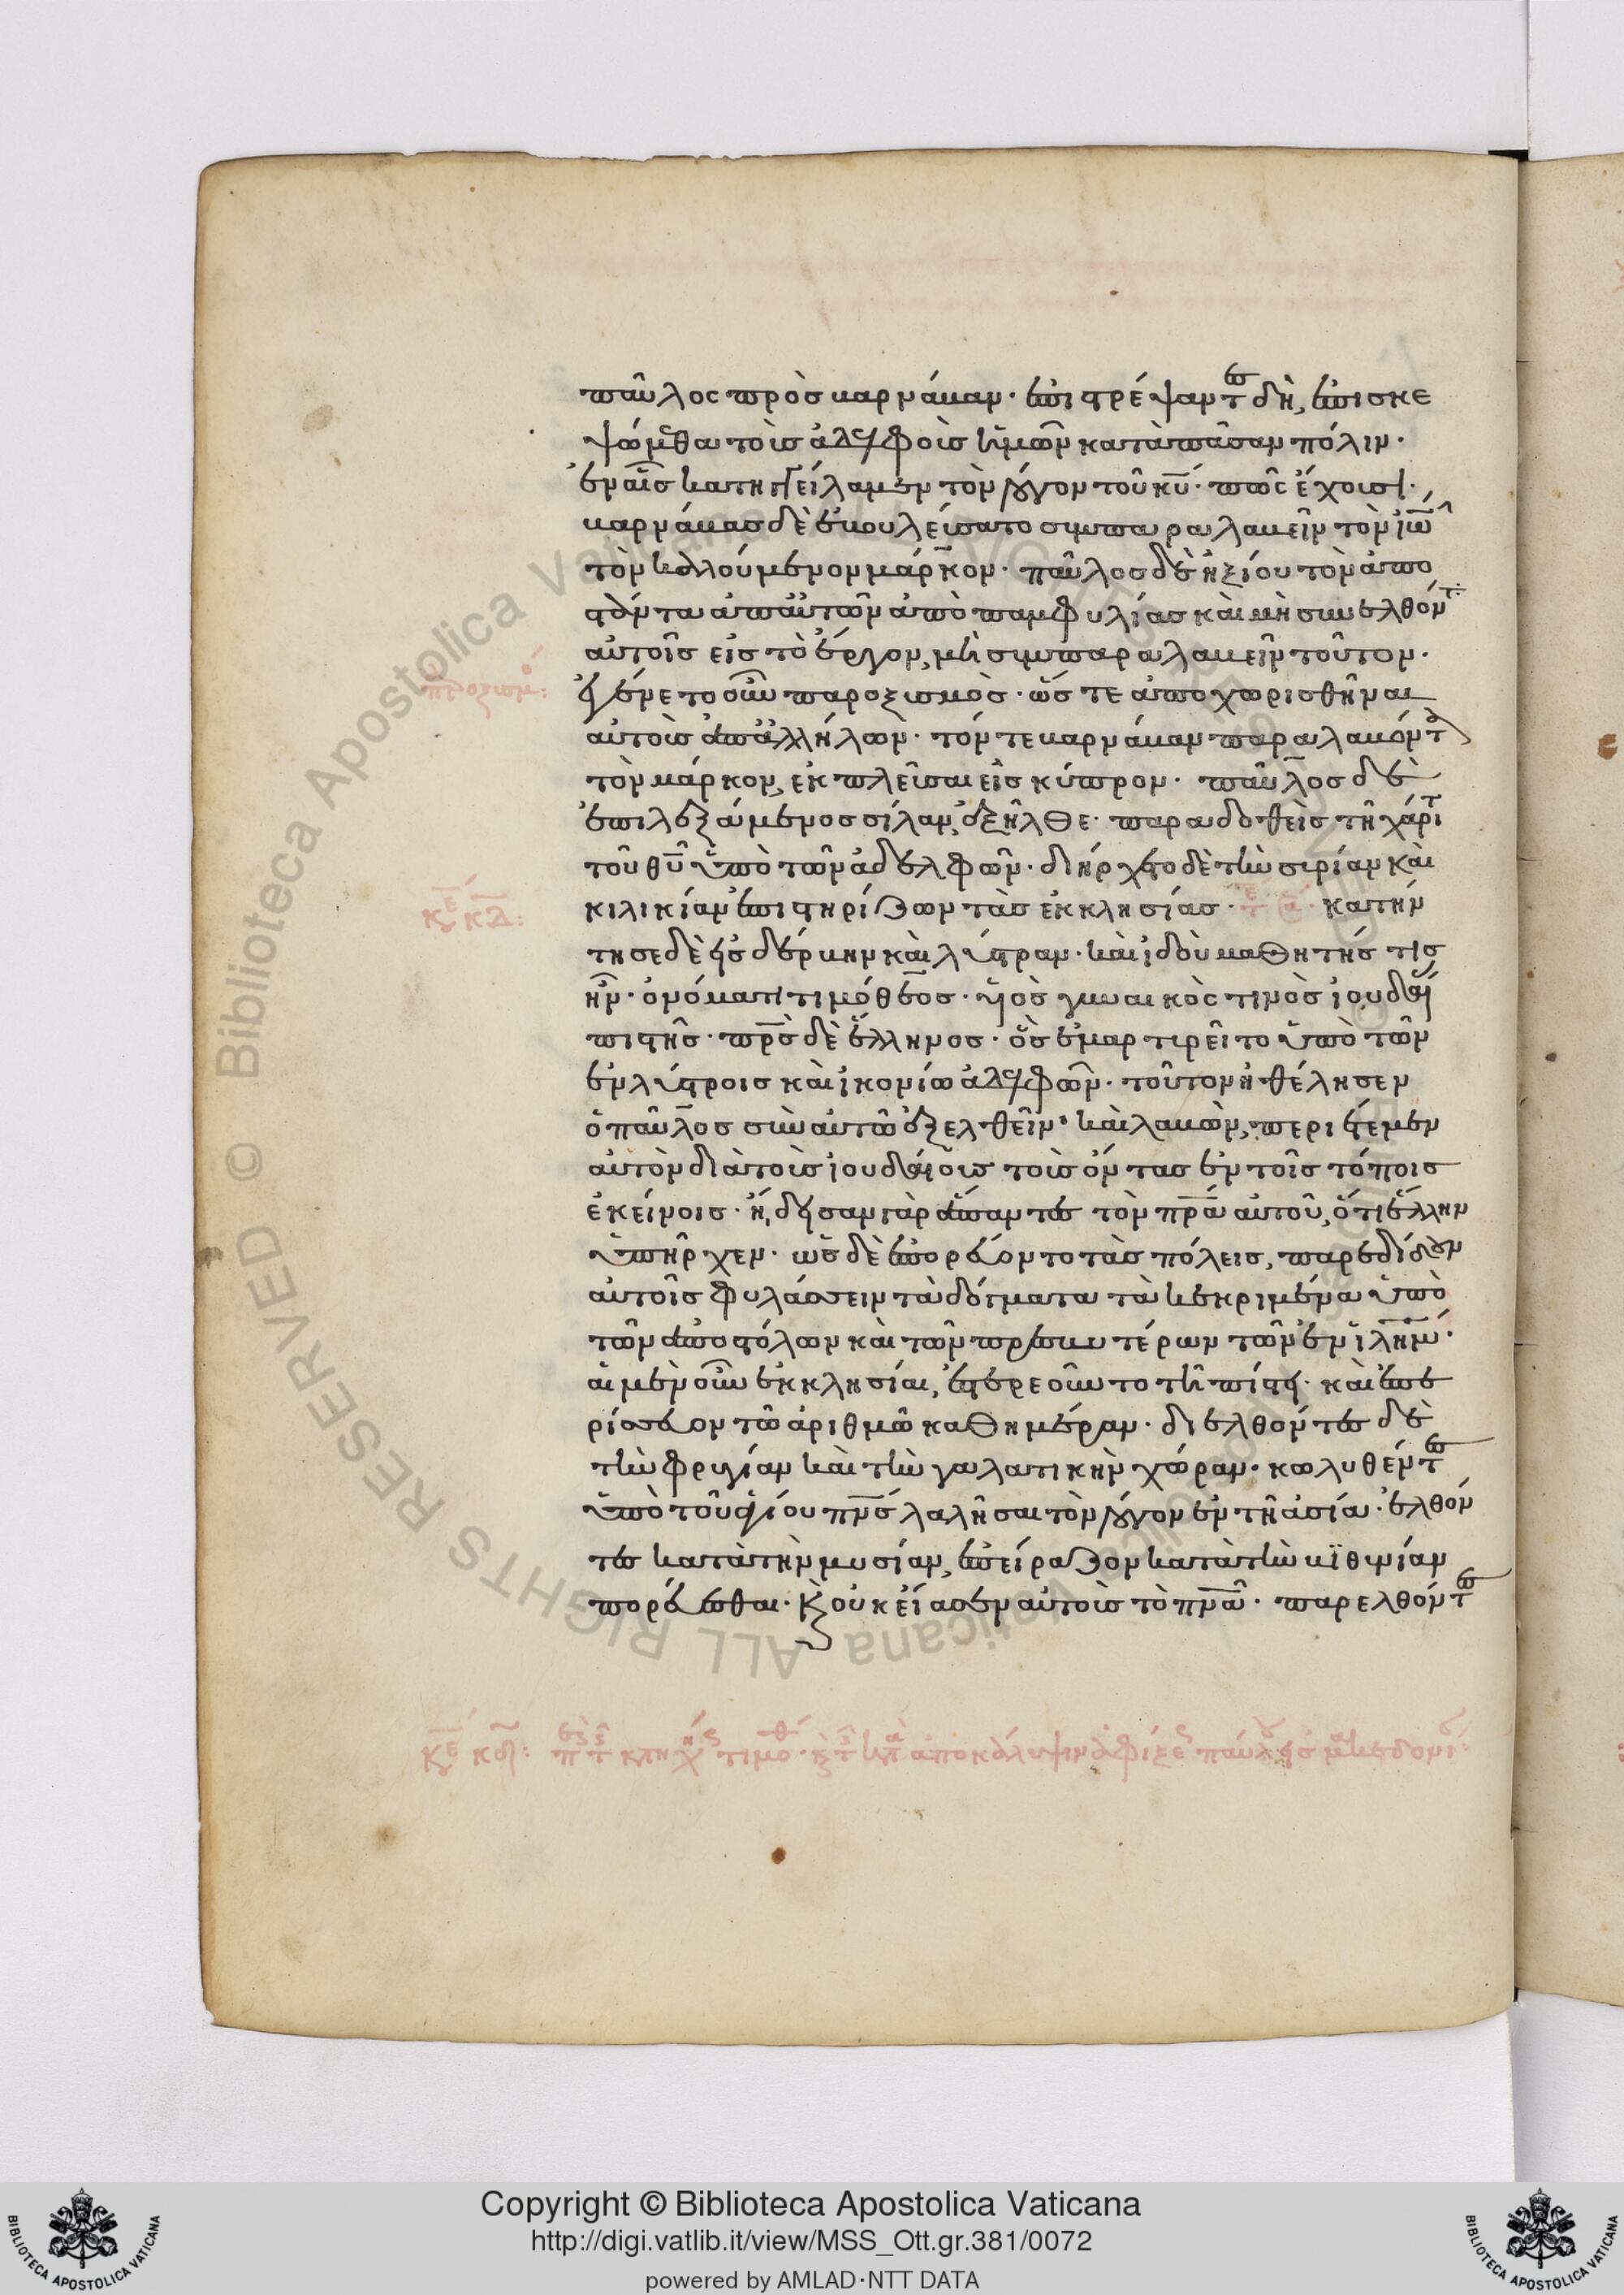 παῦλος πρὸς βαρνάβαν· ἐπιστρέψαντες δὴ, ἐπισκε
ψώμεθα τοὺς ἀδελφοὺς ἡμῶν κατὰ πᾶσαν πόλιν·
ἐν αἷς κατηγγείλαμεν τὸν λόγον τοῦ κυ̅· πῶς ἔχουσι·
βαρνάβας δὲ ἐβουλεύσατο συμπαραλαβεῖν τὸν ἰω̅
τὸν καλούμενον μάρκον· παῦλος δὲ ἠξίου τὸν ἀπο
στάντα ἀπ αὐτῶν ἀπὸ παμφυλίας καὶ μὴ συνελθόντα
αὐτοῖς εἰς τὸ ἔργον, μὴ συμπαραλαβεῖν τοῦτον·
ἐγένετο οὖν παροξυσμὸς· ὥστε ἀποχωρισθῆναι
αὐτοὺς ἀπ ἀλλήλων· τόν τε βαρνάβαν παραλαβόντα
τὸν μάρκον, ἐκπλεῦσαι εἰς κύπρον· παῦλος δὲ
ἐπιλεξάμενος σίλαν, ἐξῆλθε· παραδοθεὶς τῇ χάριτι
τοῦ θυ̅ ὑπὸ τῶν ἀδελφῶν· διήρχετο δὲ τὴν συρίαν καὶ
κιλικίαν ἐπιστηρίζων τὰς ἐκκλησίας· κατήν
τησε δὲ εἰς δέρβην καὶ λύστραν· καὶ ἰδοὺ μαθητής τις
ἦν· ὀνόματι τιμόθεος· υἱὸς γυναικὸς τινὸς ἰουδαί
πιστῆς· πρ̅ς δὲ ἕλληνος· ὃς ἐμαρτυρεῖτο ὑπὸ τῶν
ἐν λύστροις καὶ ἰκονίω ἀδελφῶν· τοῦτον ἠθέλησεν
ὁ παῦλος σὺν αὐτῶ ἐξελθεῖν· καὶ λαβὼν, περιέτεμεν
αὐτὸν διὰ τοὺς ἰουδαίους τοὺς ὄντας ἐν τοῖς τόποις
ἐκείνοις· ἤδεισαν γὰρ ἅπαντες τὸν πρ̅α αὐτοῦ, ὅτι ἕλλην
ὑπῆρχεν· ὡς δὲ ἐπορεύοντο τὰς πόλεις, παρεδίδουν
αὐτοῖς φυλάσσειν τὰ δόγματα τὰ κεκριμένα ὑπὸ
τῶν ἀποστόλων καὶ τῶν πρεσβυτέρων τῶν ἐν ἱλημ̅·
αἱ μὲν οὖν ἐκκλησίαι, ἐστερεοῦντο τῆ πίστει· καὶ ἐπε
ρίσσευον τῶ ἀριθμῶ καθημέραν· διελθόντες δὲ
τὴν φρυγίαν καὶ τὴν γαλατικὴν χώραν· κωλυθέντες
ὑπὸ τοῦ ἁγίου πν̅ς λαλῆσαι τὸν λόγον ἐν τῆ ἀσία· ἐλθόν
τες κατὰ τὴν μυσίαν, ἐπείραζον κατὰ τὴν βιθυνίαν
πορεύεσθαι· κ οὐκ εἴασεν αὐτοὺς τὸ πν̅α· παρελθόντες
Copyright © Biblioteca Apostolica Vaticana
http://digi.vatlib.it/view/MSS_Ott.gr.381/0072
powered by AMLAD·NTT DATA